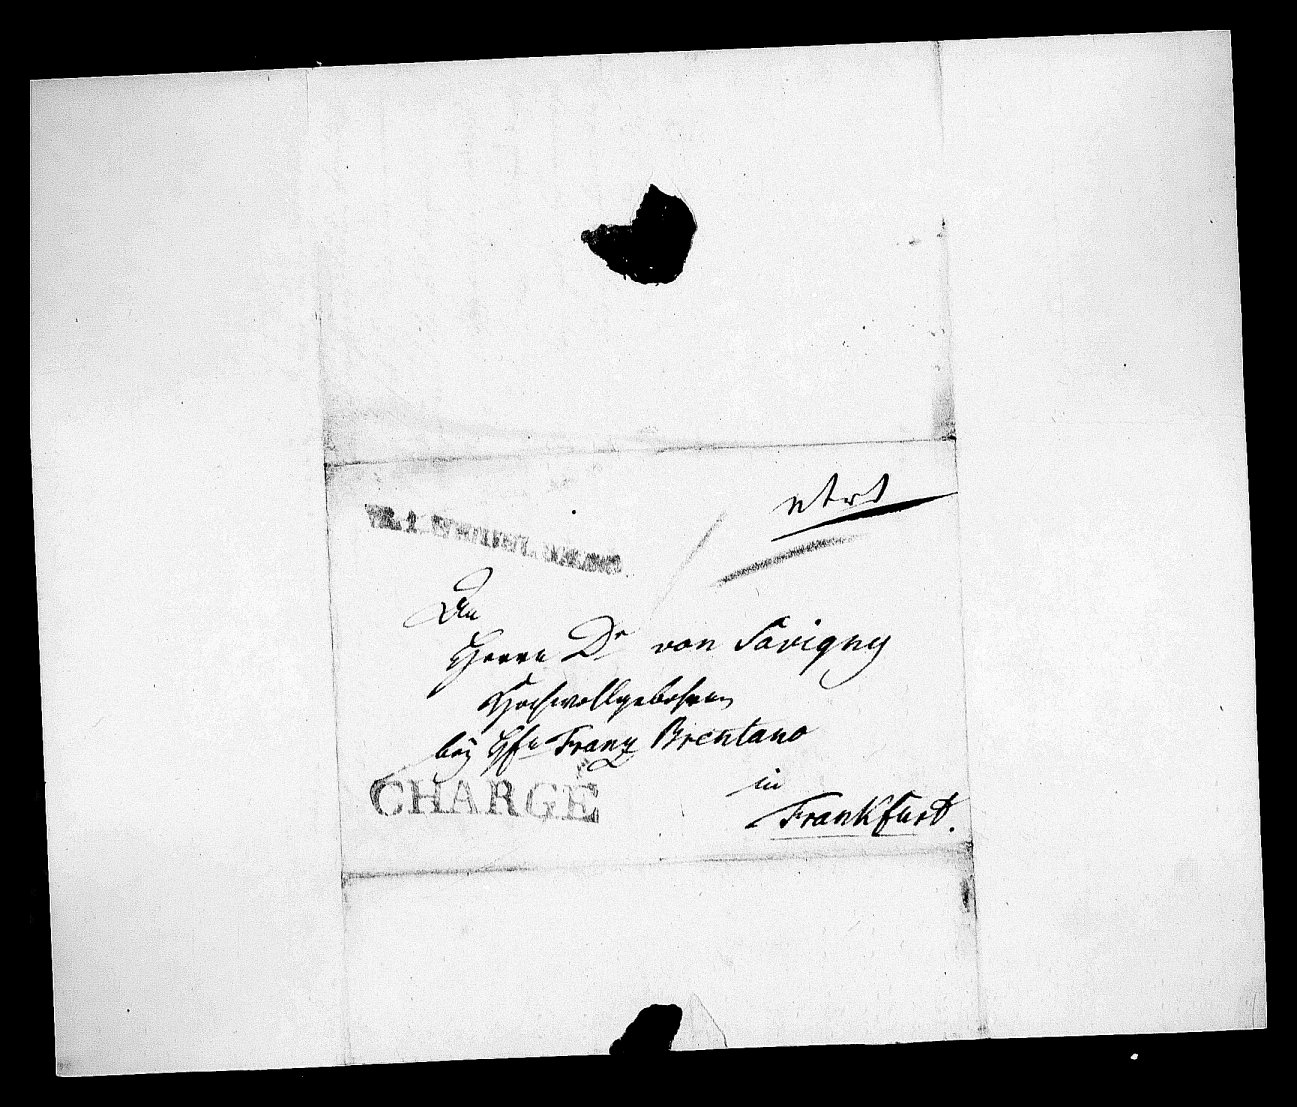 An
Herrn Dr von Savigny
Hochwollgebohren
bey Hfn Franz Brentano
in
Frankfurt.
CHARGÉ